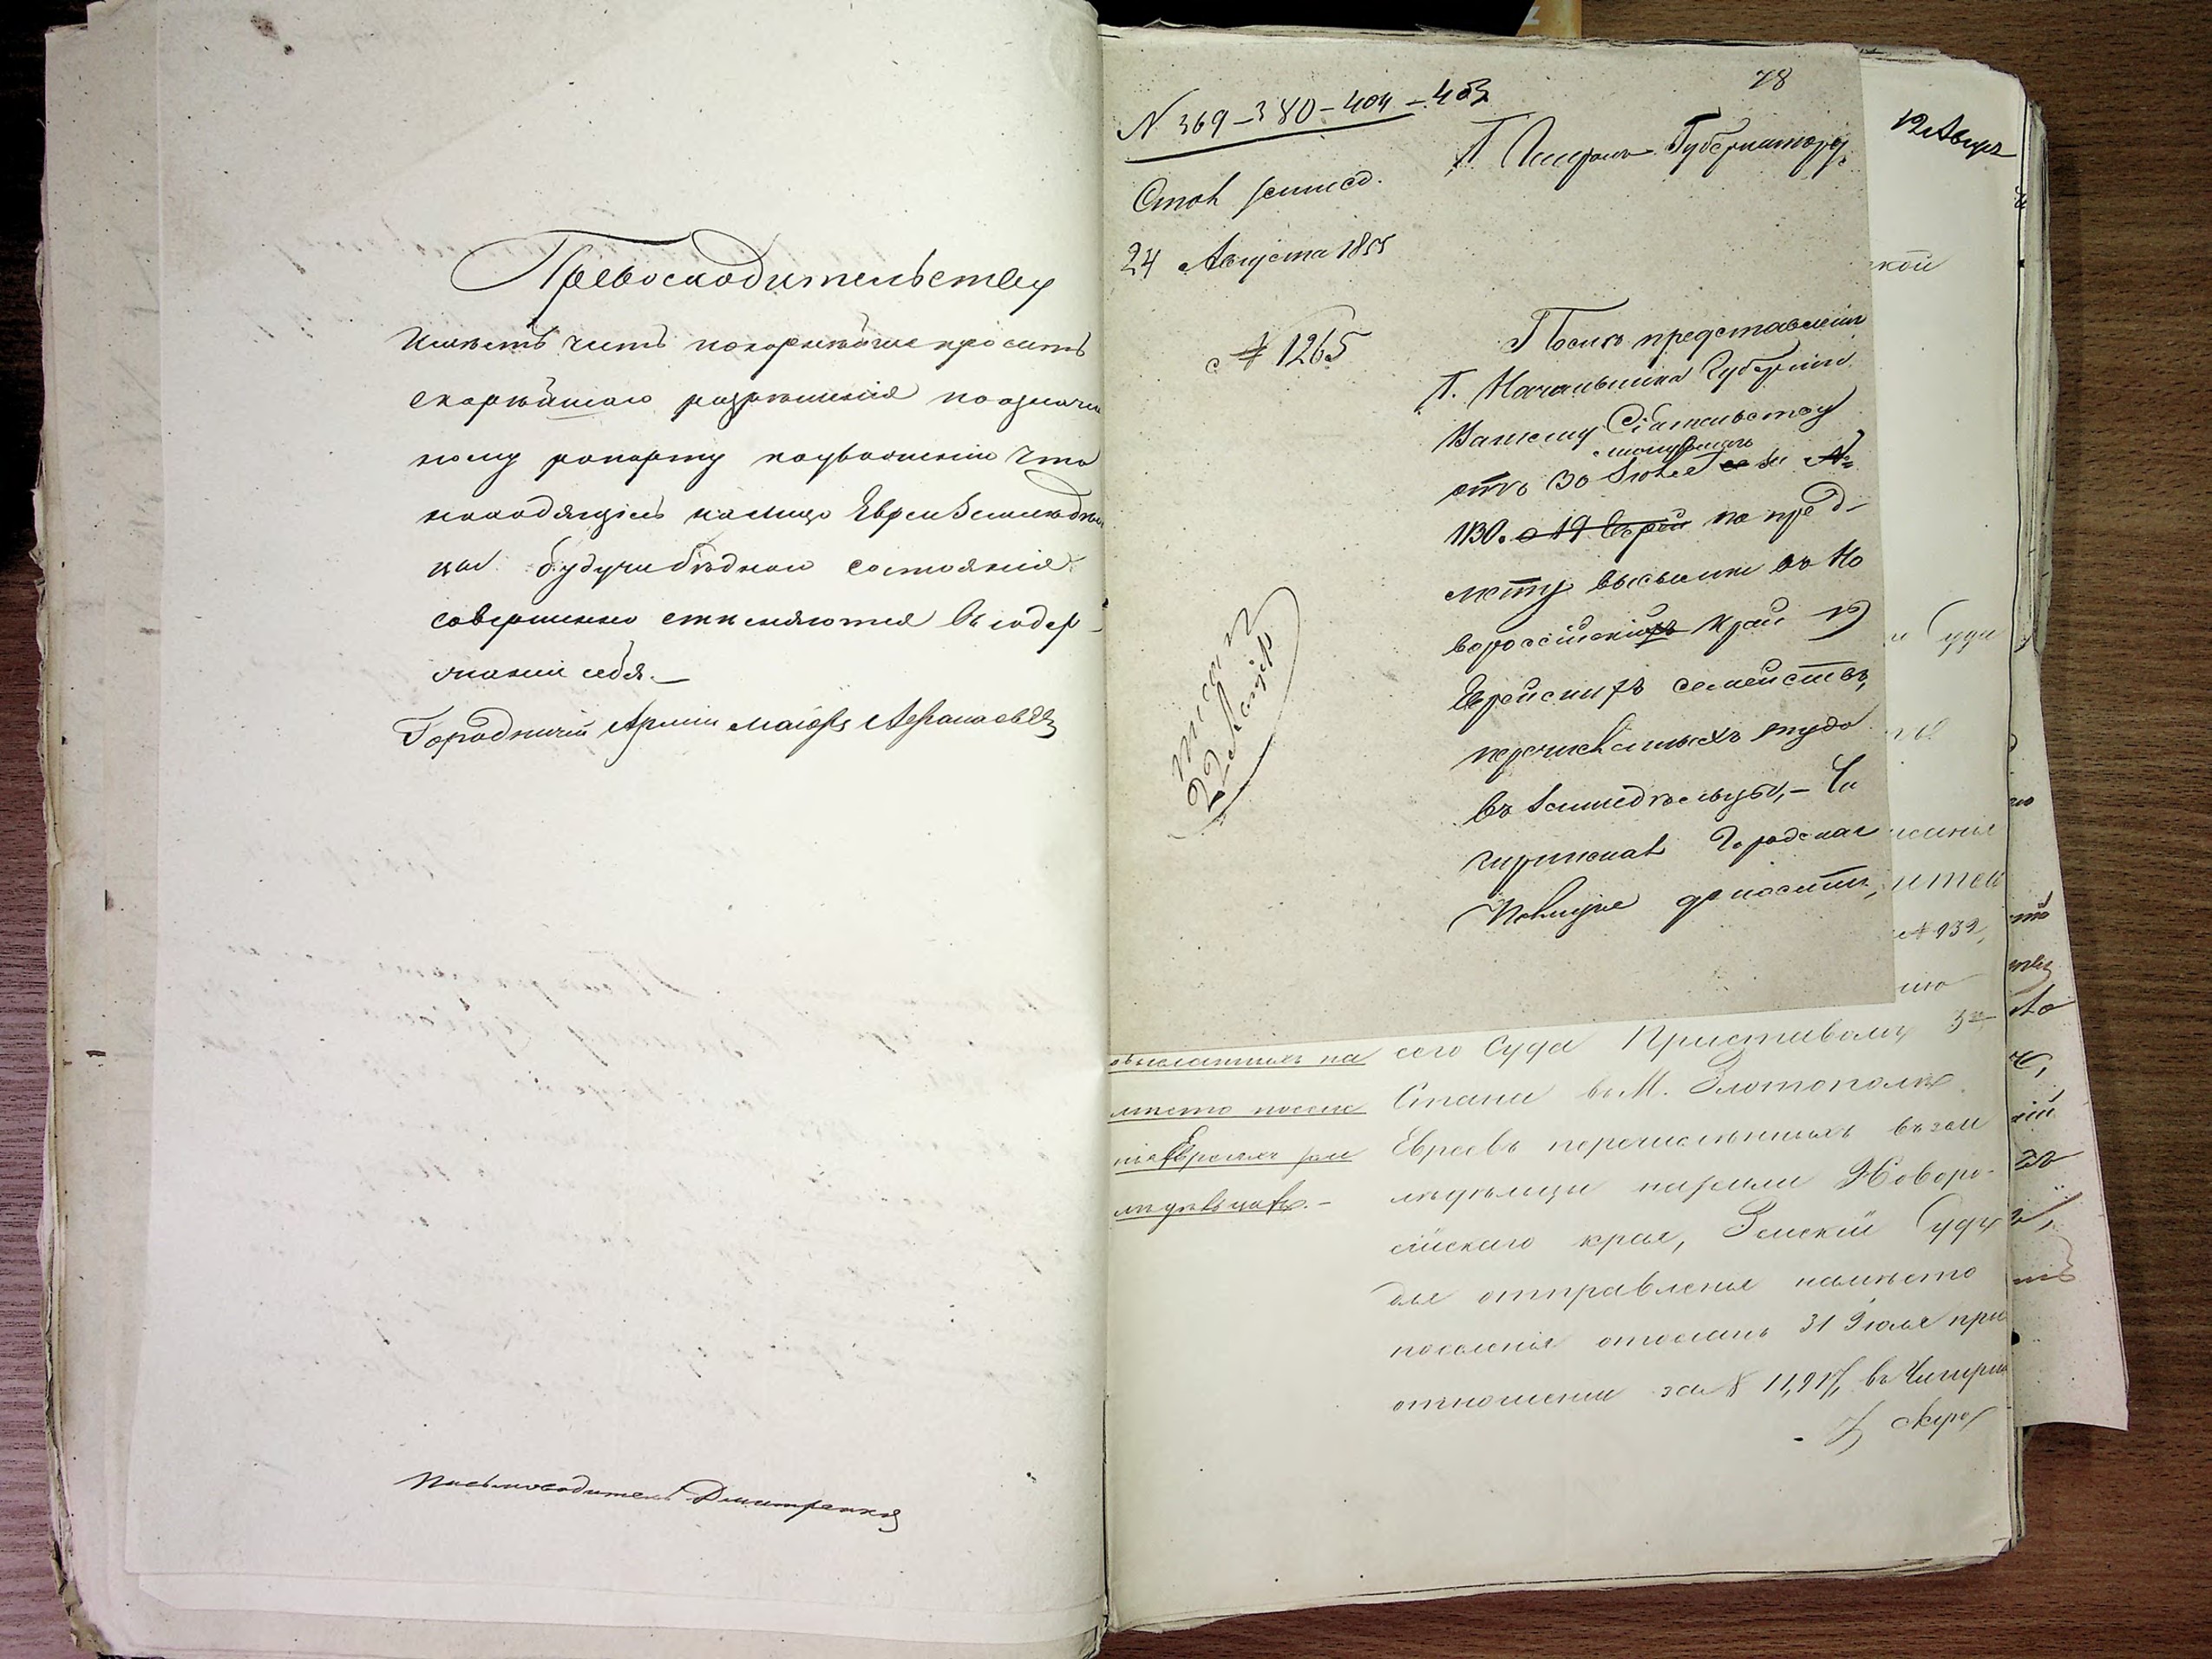 Превосходительству
имѣетъ честь покорнѣйше просить
скорѣйшаго разрѣшенія по означен
ному рапорту поуваженію что
находящіесь налицо Евреи Земледѣль
цы будучи бѣдного состоянія
совершенно стѣсняются въ содер-
жаніи себя.—
Городничій Арміи Маіоръ
Письмоводитель Дмитренко
78
N 369-380-404-453
Г. Генералъ Губернатору
24 Августа 1855
№ 1265
Послѣ представленія
Г. Начальника Губерніи
Вашему Сіятельству
отъ 30 Іюля за №
1130. о 19 Еврей по пред-
мету высылки въ Но
вороссійскій Край 19
Еврейскихъ семействъ,
перечисленныхъ туда
въ Земледѣльцы,— Чи
гиринская Городская
Полиція доноситъ,
22 Август
12 Авгус
ской
Суда
№ 939,
высланныхъ на
мѣсто поселе
нія Евреяхъ зем
ледѣльцахъ.—
сего Суда Приставомъ 3го
Стана въ М. Златополѣ
Евреевъ перечисленныхъ въ зем
ледѣльцы на земли Новоро-
сійскаго края, Земскій Судъ
для отправленія намѣсто
поселенія отославъ 31 Іюля при
отношеніи за № 11,917, въ Чигирин